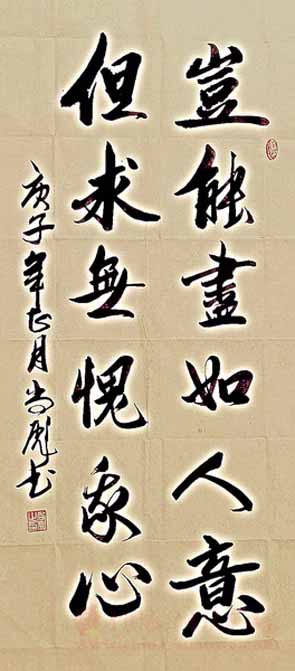 豈能盡如人意
但求無愧我心
庚子年正月尚彪书